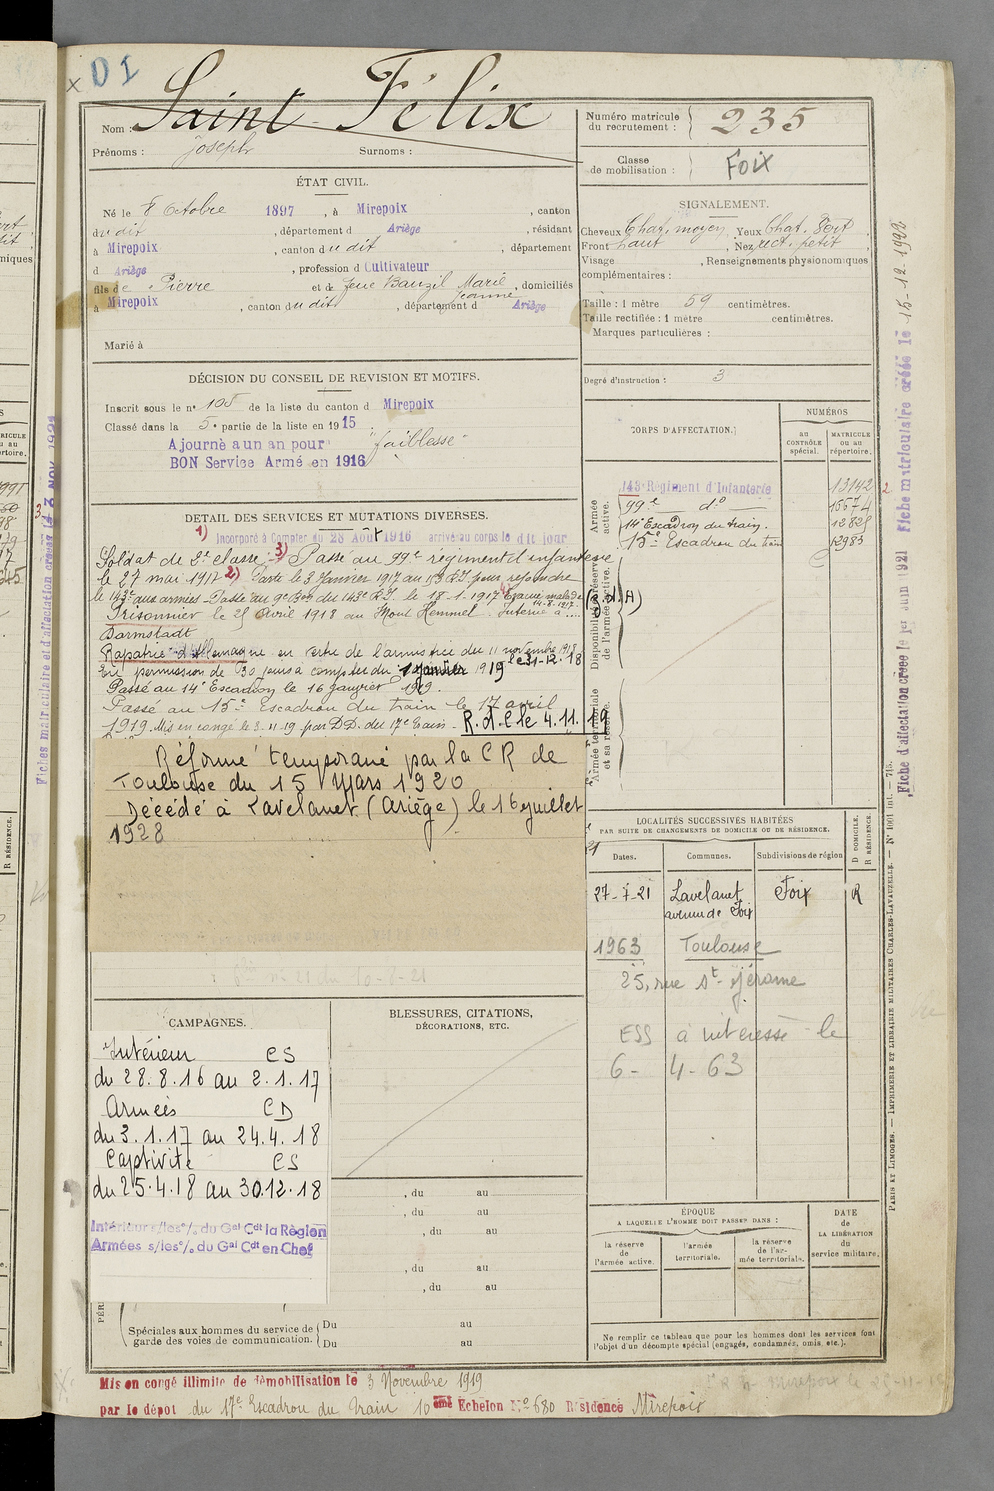 D I
Nom : Saint-Félix
Prénoms : Joseph Surnoms :
Numéro matricule du recrutement : 235
Classe de mobilisation : Foix
ÉTAT CIVIL.
Né le 8 Octobre 1897, à Mirepoix, canton
dudit, département d Ariège, résidant
à Mirepoix, canton dudit, département
d Ariège, profession d Cultivateur
fils de Pierre et de feue Bauzil Marie Jeanne, domiciliés
à Mirepoix, canton dudit, département d Ariège
Marié à
SIGNALEMENT.
Cheveux Chat. moyen, Yeux Chat. Vert,
Front haut, Nez rect. petit
Visage, Renseignements physionomiques
complémentaires :
Taille : 1 mètre 59 centimètres.
Taille rectifiée : 1 mètre centimètres.
Marques particulières :
Degré d'instruction : 3
DÉCISION DU CONSEIL DE REVISION ET MOTIFS.
Inscrit sous le n° 105 de la liste du canton d Mirepoix
Classé dans la 5e partie de la liste en 1915
Ajourné a un an pour "faiblesse"
BON Service Armé en 1916
DÉTAIL DES SERVICES ET MUTATIONS DIVERSES.
1) Incorporé à Compter du 28 Août 1916 arrivé au corps le dit jour
Soldat de 2e classe. 3) Passé au 99e régiment d'infanterie
le 27 mai 1917 2) Passé le 3 Janvier 1917 au RI pour rejoindre
le 143e aux armées. Passé au 9e Bon du 143e R.I. le 18-1-1917 Evacué malade
14-8-1917
Prisonnier le 25 Avril 1918 au Mont Kemmel. Interné à ....
Darmstadt
Rapatrié d'Allemagne en vertu de l'armistice du 11 novembre 1918
le 31-12-18
En permission de 30 jours à compter du 1 janvier 1919
Passé au 14e Escadron le 16 janvier 1919.
Passé au 15e Escadron du train le 17 avril
1919. Mis en congé le 3-11-19 par D.D. du 17e Train - R.d.C le 4.11.19
Réformé temporaire par la CR de
Toulouse du 15 Mars 1920
Décédé à Lavelanet (Ariège) le 16 juillet
1928
CORPS D'AFFECTATION.
NUMÉROS
au CONTRÔLE spécial.
MATRICULE ou au répertoire.
Armée active.
143e Régiment d'Infanterie 13142
99e do 15674
14e Escadron du train. 12828
15e Escadron du train 12983
Disponibilité et réserve de l'armée active.
Armée territoriale et sa réserve.
LOCALITÉS SUCCESSIVES HABITÉES
PAR SUITE DE CHANGEMENTS DE DOMICILE OU DE RÉSIDENCE.
Dates. Communes. Subdivisions de région
D DOMICILE. R RÉSIDENCE.
27-7-21 Lavelanet Foix R
avenue de Foix
1963 Toulouse
25, rue St-Jérôme
ESS à intéressé le
6- 4-63
CAMPAGNES.
Intérieur CS
du 28.8.16 au 2.1.17
Armées CD
du 3.1.17 au 24.4.18
Captivité CS
du 25.4.18 au 30.12.18
Intérieur s/les °/. du Gal Cdt la Région
Armées s/les °/. du Gal Cdt en Chef
BLESSURES, CITATIONS,
DÉCORATIONS, ETC.
, du au
, du au
, du au
, du au
, du au
Spéciales aux hommes du service de garde des voies de communication.
Du au
Du au
ÉPOQUE
A LAQUELLE L'HOMME DOIT PASSER DANS :
la réserve de l'armée active.
l'armée territoriale.
la réserve de l'armée territoriale.
DATE de LA LIBÉRATION du service militaire.
Ne remplir ce tableau que pour les hommes dont les services font
l'objet d'un décompte spécial (engagés, condamnés, omis, etc.).
Mis en congé illimité de démobilisation le 3 Novembre 1919
par le dépôt du 17e Escadron du Train 10ème Echelon N° 680 Résidence Mirepoix
Fiche d'affectation créée le 1er Juin 1921 Fiche matriculaire créée le 15-12-1922
PARIS ET LIMOGES. — IMPRIMERIE ET LIBRAIRIE MILITAIRES CHARLES-LAVAUZELLE. — N° 1001 int. — 7-15.